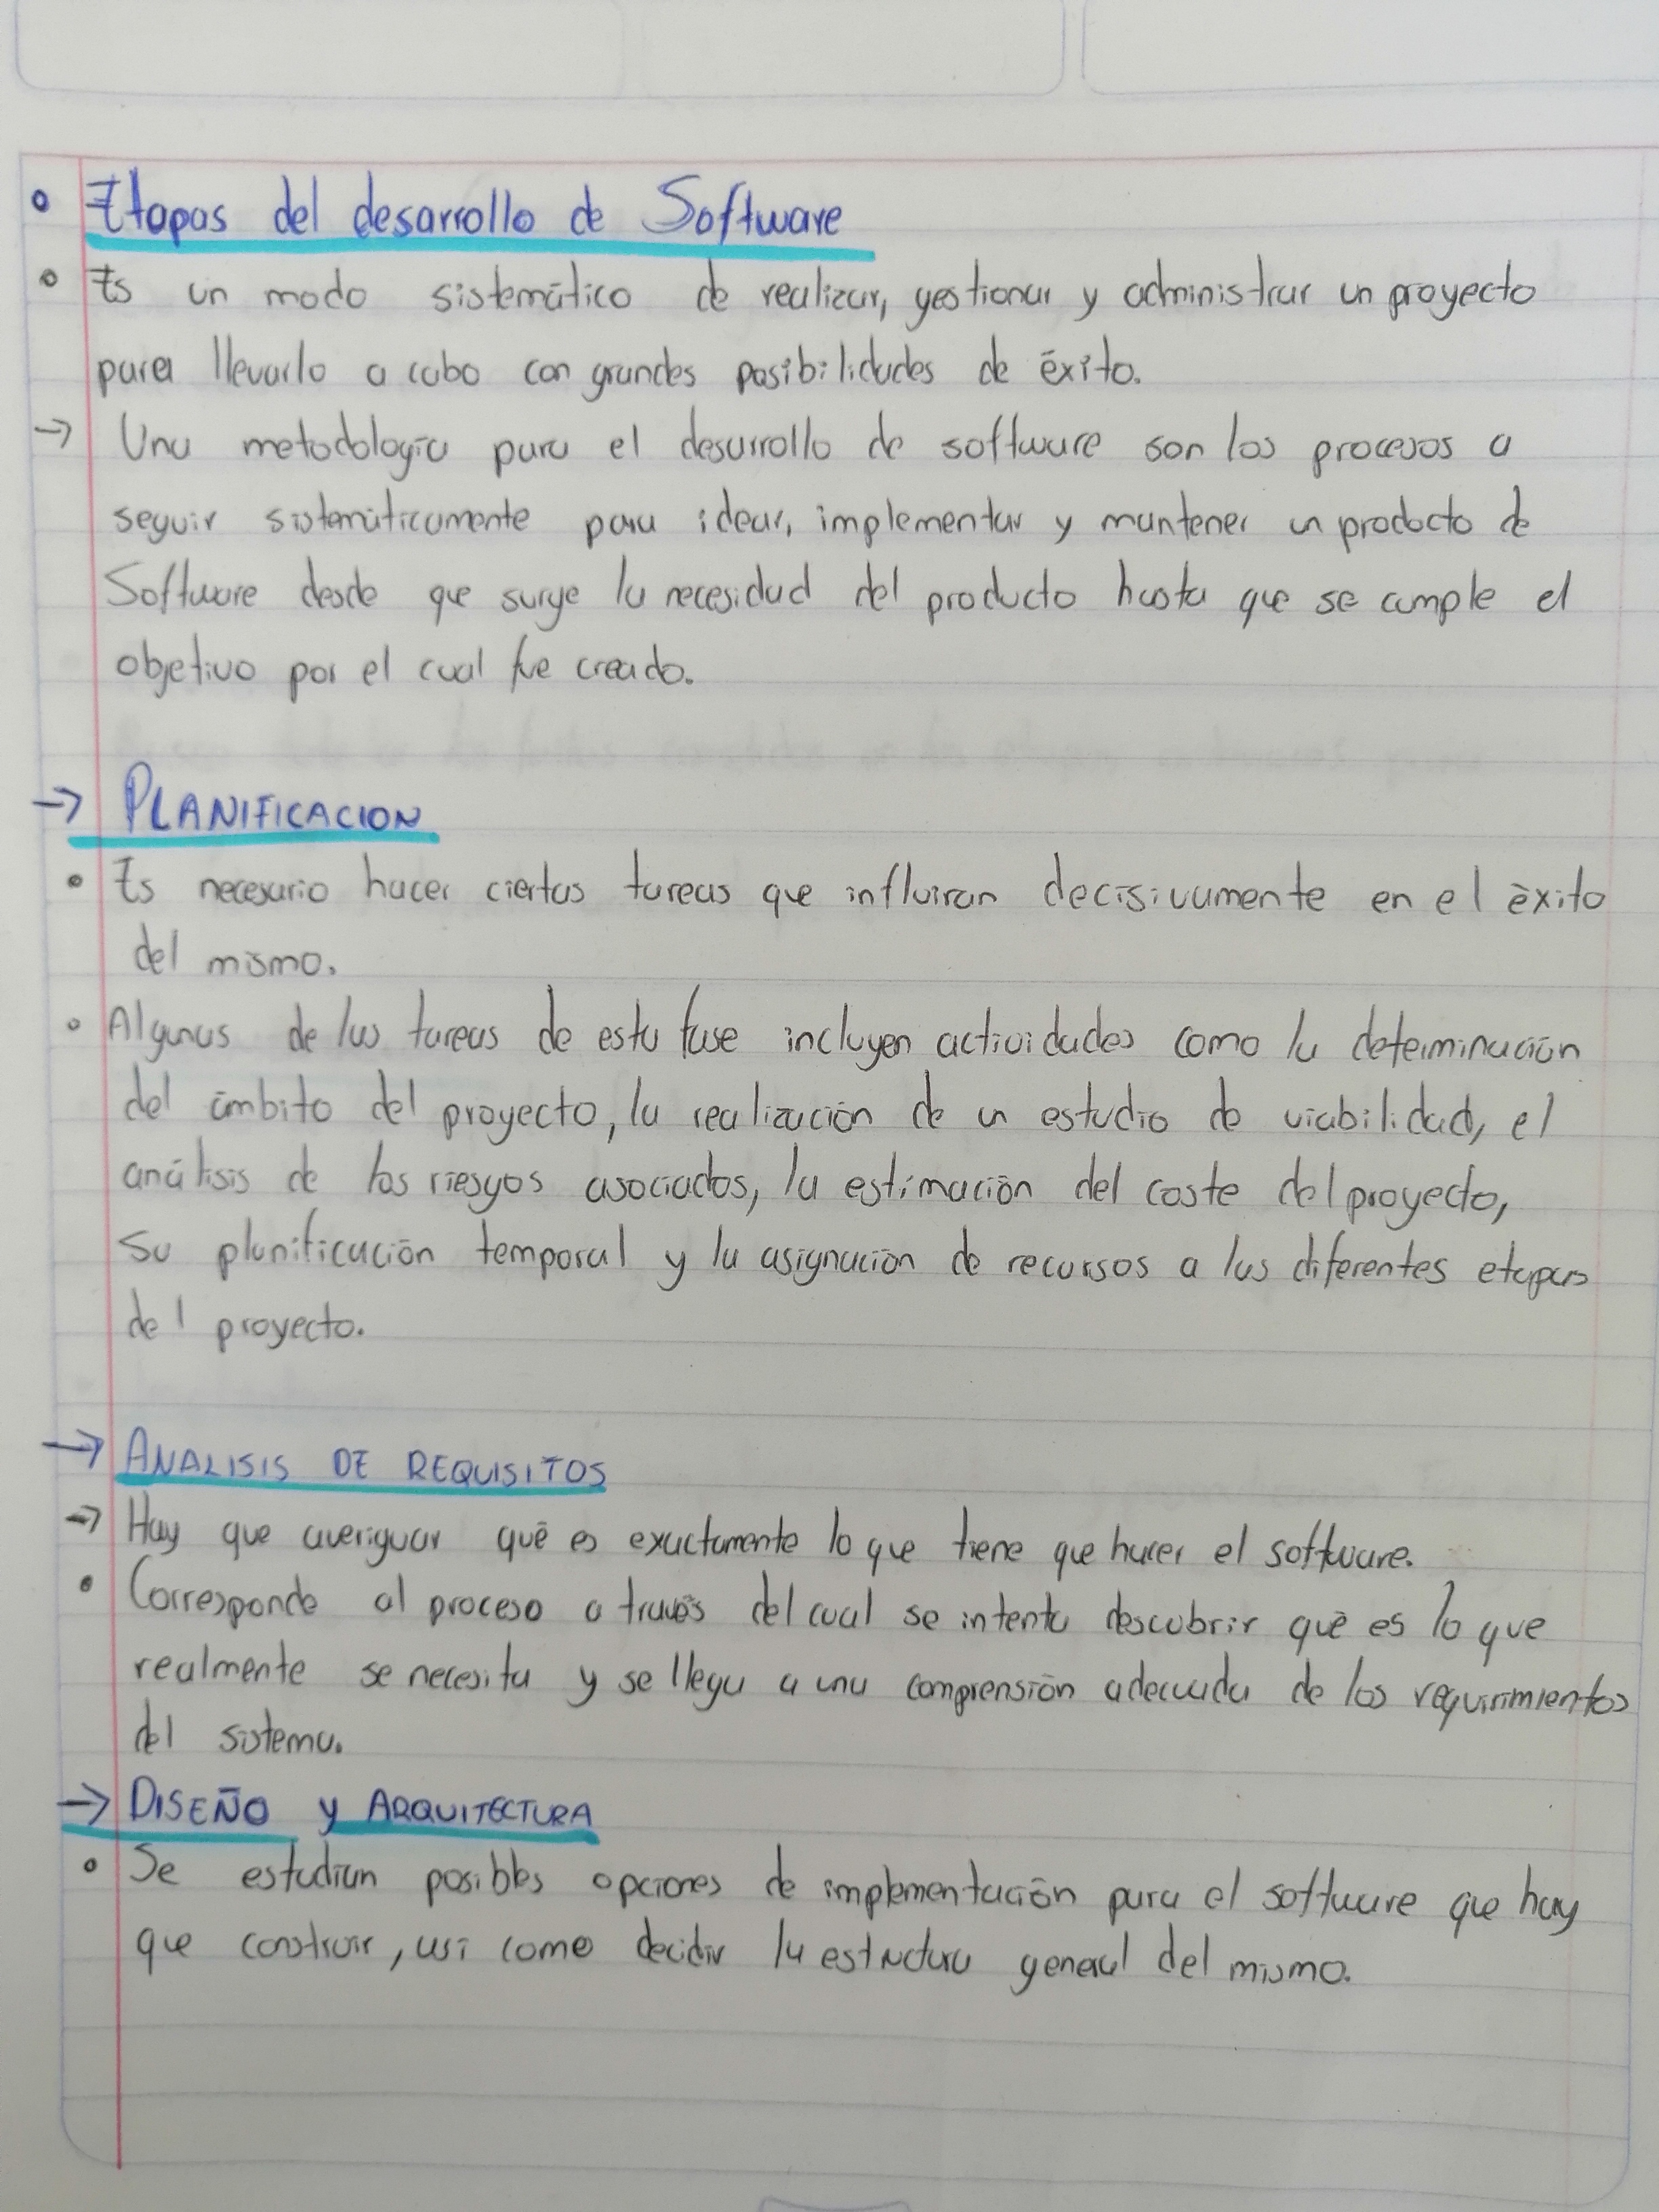 • Etapas del desarrollo de Software
• Es un modo sistemático de realizar, gestionar y administrar un proyecto
para llevarlo a cabo con grandes posibilidades de éxito.
→ Una metodología para el desarrollo de software son los procesos a
seguir sistemáticamente para idear, implementar y mantener un producto de
Software desde que surge la necesidad del producto hasta que se cumple el
objetivo por el cual fue creado.
→ PLANIFICACION
• Es necesario hacer ciertas tareas que influiran decisivamente en el éxito
del mismo.
• Algunas de las tareas de esta fase incluyen actividades como la determinación
del ámbito del proyecto, la realización de un estudio de viabilidad, el
análisis de los riesgos asociados, la estimación del coste del proyecto,
su planificación temporal y la asignación de recursos a las diferentes etapas
del proyecto.
→ ANALISIS DE REQUISITOS
→ Hay que averiguar qué es exactamente lo que tiene que hacer el software.
• Corresponde al proceso a través del cual se intenta descubrir qué es lo que
realmente se necesita y se llega a una comprensión adecuada de los requirimientos
del sistema.
→ DISEÑO y ARQUITECTURA
• Se estudian posibles opciones de implementación para el software que hay
que construir, así como decidir la estructura general del mismo.